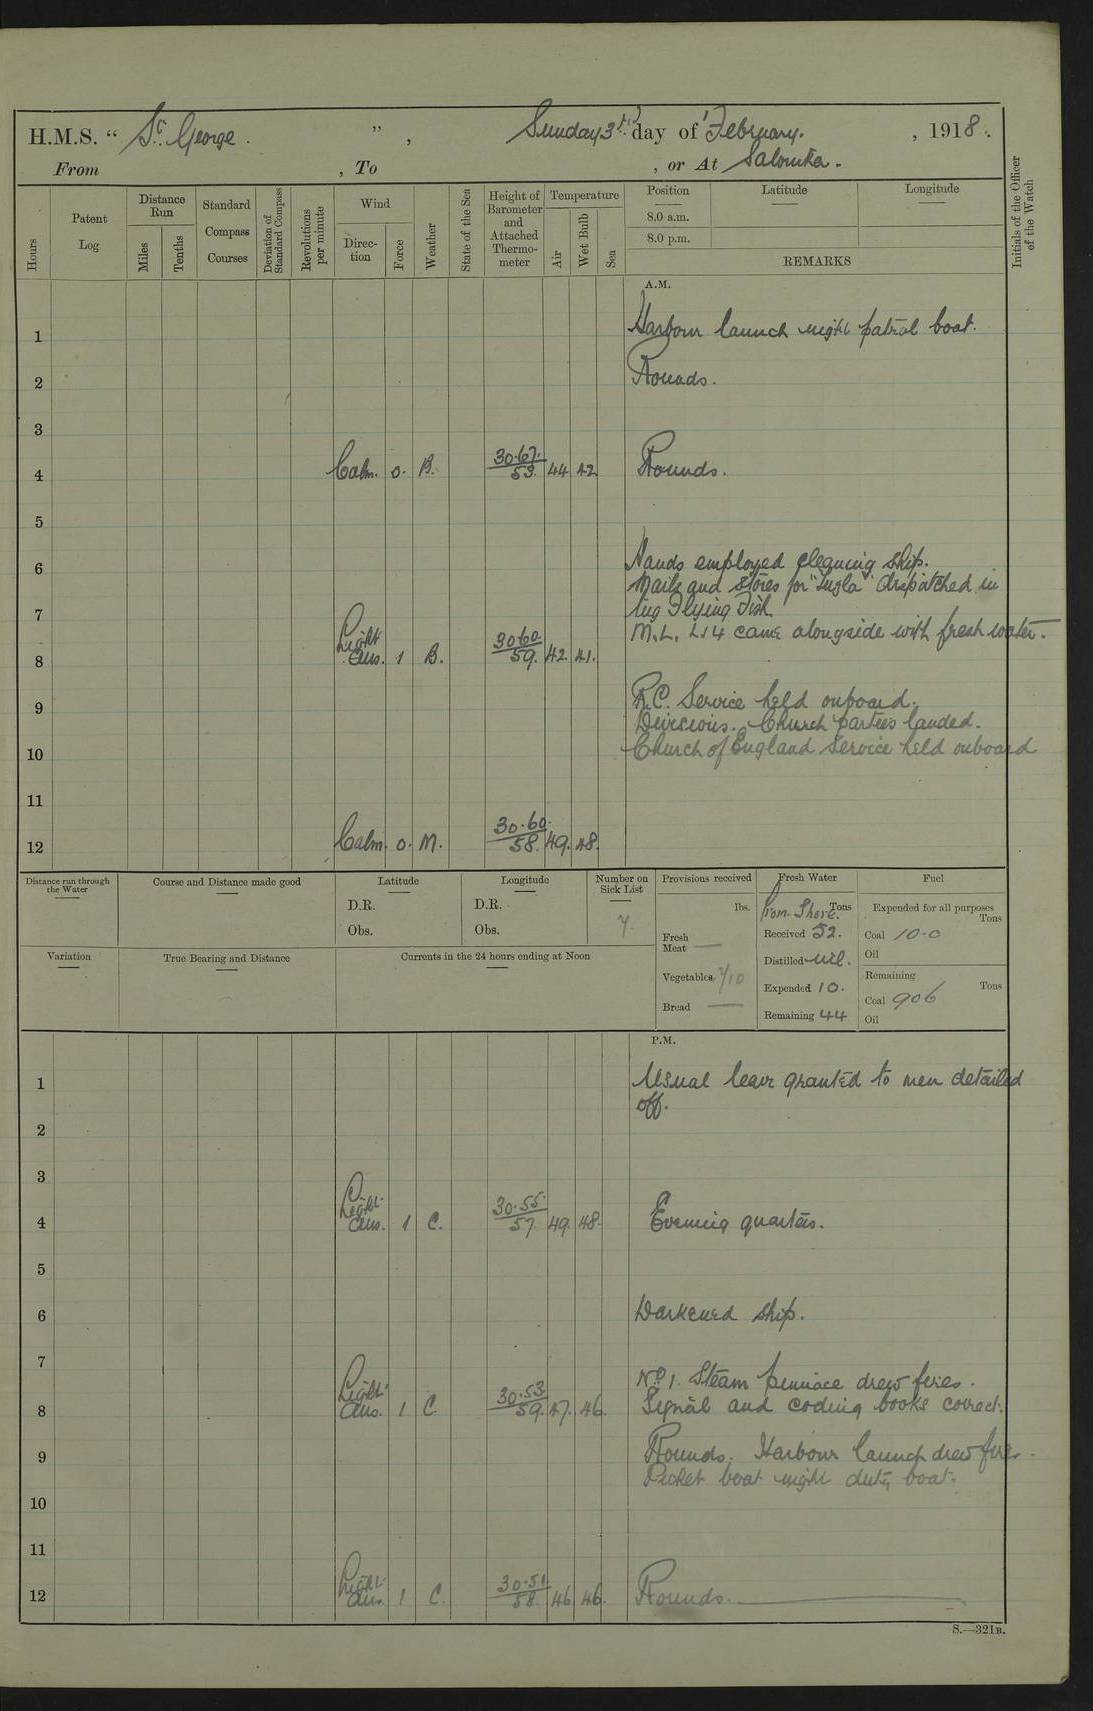 H.M.S. “ St. George. ” , Sunday 3rd day of February. , 1918.
From , To , or At Salonika.
Hours
Patent Log
Distance Run
Miles
Tenths
Standard Compass Courses
Deviation of Standard Compass
Revolutions per minute
Wind
Direction
Force
Weather
State of the Sea
Height of Barometer and Attached Thermometer
Temperature
Air
Wet Bulb
Sea
Position Latitude Longitude
8.0 a.m.
8.0 p.m.
REMARKS
Initials of the Officer of the Watch
A.M.
1 Harbour launch night patrol boat.
2 Rounds.
3
4 Calm. 0. B. 30.67. 53. 44 42 Rounds.
5
6 Hands employed cleaning ship.
Mails and stores for dispatched in
7 tug Flying Fish.
M.L. 214 came alongside with fresh water.
8 Light airs. 1 B. 30.60. 59. 42. 41.
9 R.C. Service held onboard.
Divisions. Church parties landed.
10 Church of England Service held onboard
11
12 Calm. 0. M. 30.60. 58. 49. 48.
Distance run through the Water
Course and Distance made good
Latitude
D.R.
Obs.
Longitude
D.R.
Obs.
Number on Sick List
7
Provisions received
lbs.
Fresh Meat —
Vegetables 710
Bread —
Fresh Water
From Shore. Tons
Received 52.
Distilled Nil.
Expended 10.
Remaining 44
Fuel
Expended for all purposes
Tons
Coal 10-0
Oil
Remaining
Tons
Coal 906
Oil
Variation
True Bearing and Distance
Currents in the 24 hours ending at Noon
P.M.
1 Usual leave granted to men detailed
off.
2
3
4 Light airs. 1 C. 30.55. 57. 49. 48. Evening quarters.
5
6 Darkened ship.
7 No. 1. Steam pinnace drew fires.
8 Light airs. 1 C. 30.53. 59. 47. 46. Signal and coding books correct.
9 Rounds. Harbour launch drew fires.
Picket boat night duty boat.
10
11
12 Light airs. 1 C. 30.51. 58. 46 46. Rounds.
S.—321B.